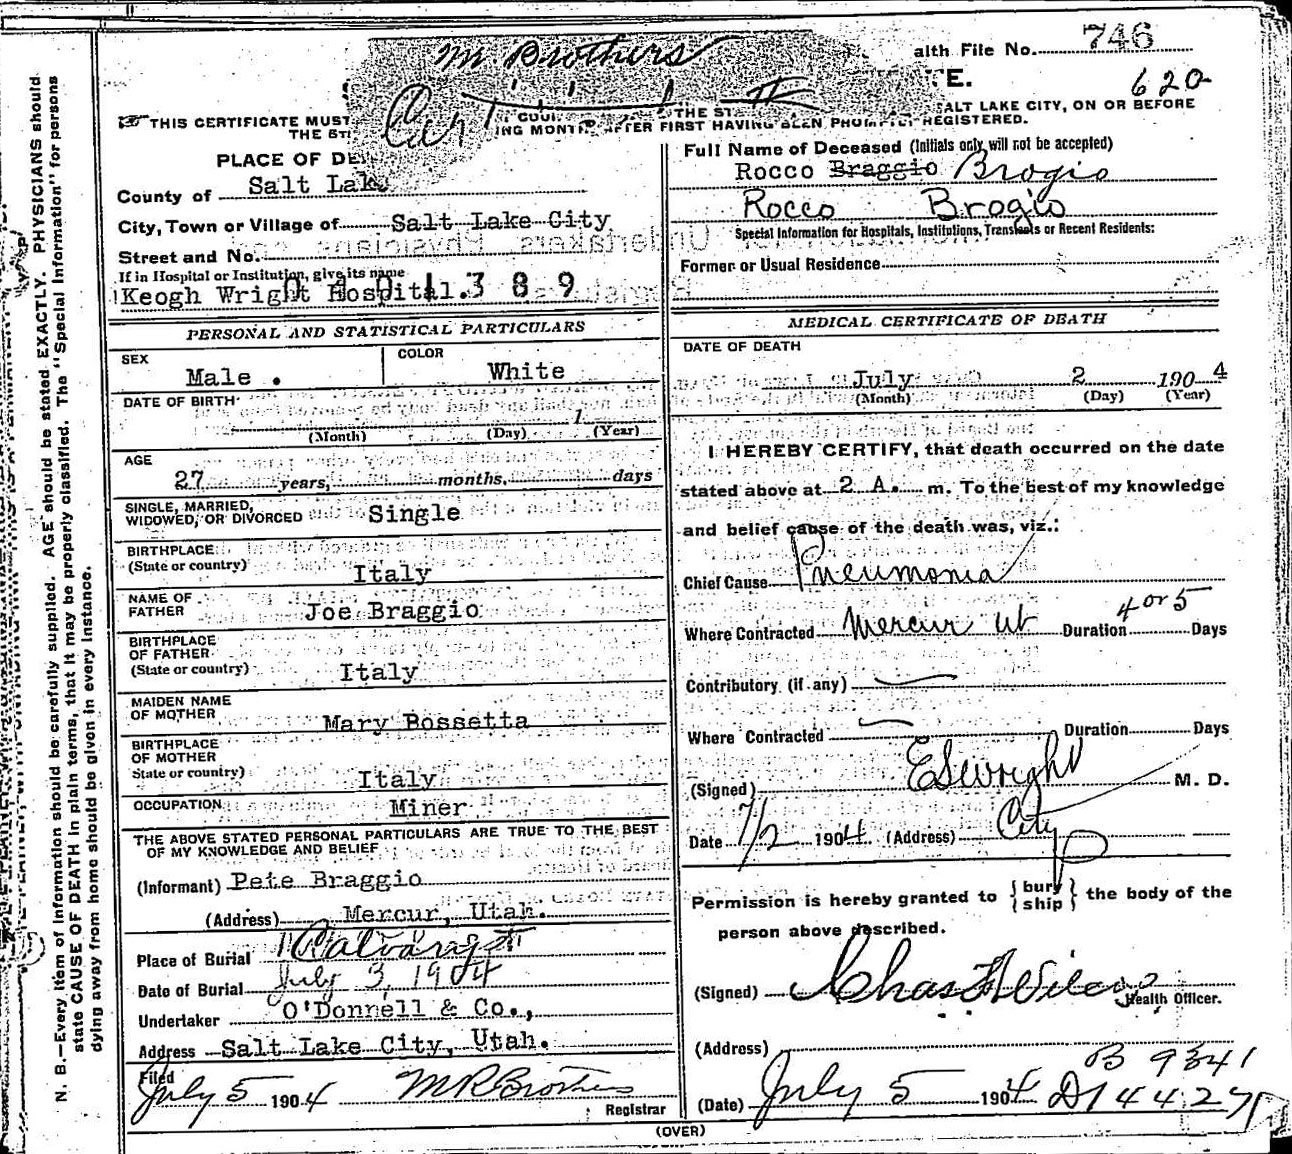 M. Brothers
alth File No. 746
TE.
620
THIS CERTIFICATE MUST
THE STA
SALT LAKE CITY, ON OR BEFORE
ING MONTH, AFTER FIRST HAVING BEEN PROMPTLY REGISTERED.
PLACE OF DE
County of Salt Lake
City, Town or Village of Salt Lake City
Street and No.
If in Hospital or Institution, give its name
Keogh Wright Hospital.
0401389
PERSONAL AND STATISTICAL PARTICULARS
SEX
Male .
COLOR
White
DATE OF BIRTH
1
(Month) (Day) (Year)
AGE
27 years, months, days
SINGLE, MARRIED,
WIDOWED, OR DIVORCED Single
BIRTHPLACE
(State or country)
Italy
NAME OF
FATHER
Joe Braggio
BIRTHPLACE
OF FATHER
(State or country)
Italy
MAIDEN NAME
OF MOTHER
Mary Bossetta
BIRTHPLACE
OF MOTHER
State or country)
Italy
OCCUPATION
Miner
THE ABOVE STATED PERSONAL PARTICULARS ARE TRUE TO THE BEST
OF MY KNOWLEDGE AND BELIEF
(Informant) Pete Braggio
(Address) Mercur, Utah.
Place of Burial Calvary
Date of Burial July 3, 1904
Undertaker O'Donnell & Co.,
Address Salt Lake City, Utah.
Filed
July 5 1904 M R Brothers
Registrar
Full Name of Deceased (Initials only will not be accepted)
Rocco Braggio Brogio
Rocco Brogio
Special Information for Hospitals, Institutions, Transients or Recent Residents:
Former or Usual Residence
MEDICAL CERTIFICATE OF DEATH
DATE OF DEATH
July 2 1904
(Month) (Day) (Year)
I HEREBY CERTIFY, that death occurred on the date
stated above at 2 A. m. To the best of my knowledge
and belief cause of the death was, viz.:
Chief Cause Pneumonia
Where Contracted Mercur Ut Duration 4 or 5 Days
Contributory (if any)
Where Contracted Duration Days
(Signed) E S Wright M. D.
Date 7/2 1904 (Address) City
Permission is hereby granted to { bury ship } the body of the
person above described.
(Signed) Chas
Health Officer.
(Address)
B 9341
(Date) July 5 1904 D14427
(OVER)
N. B.—Every item of information should be carefully supplied. AGE should be stated EXACTLY. PHYSICIANS should
state CAUSE OF DEATH in plain terms, that it may be properly classified. The "Special Information" for persons
dying away from home should be given in every instance.